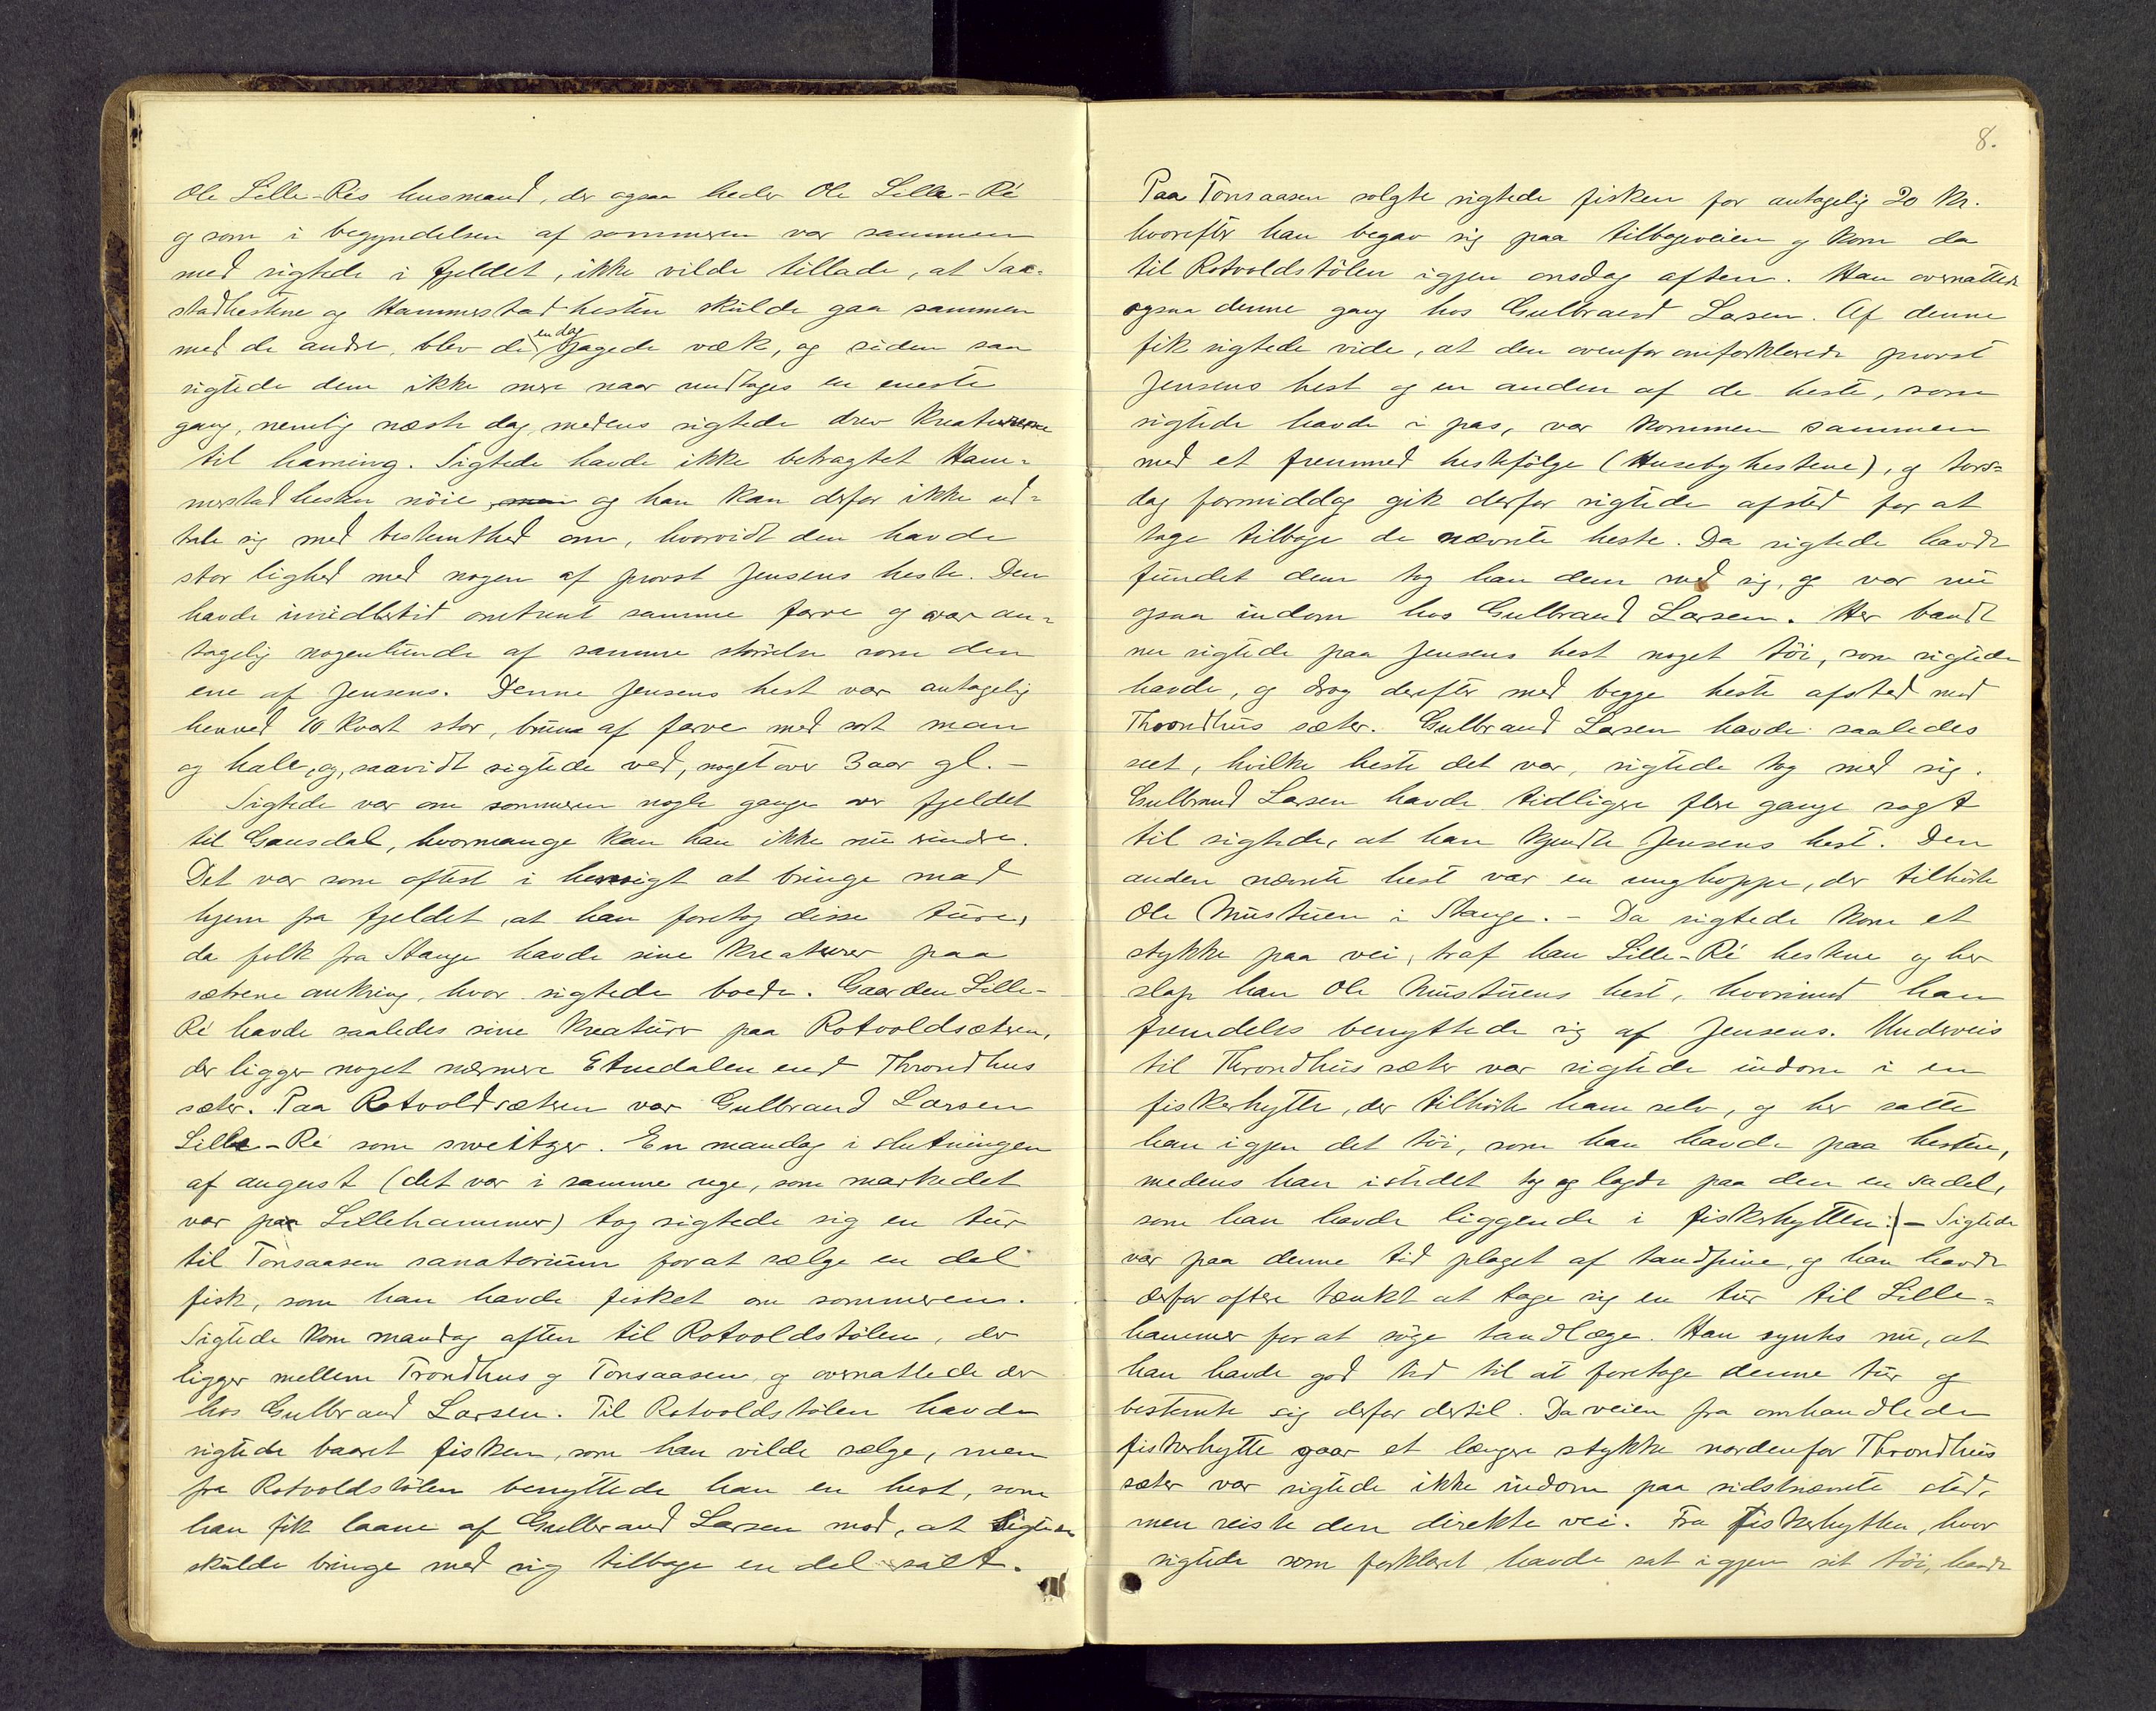 Ole Lille-Rés husmand, der ogsaa heder Ole Lille-Ré
og som i begyndelsen af sommeren var sammen
med sigtede i fjeldet, ikke vilde tillade, at Saa-
stadhestene og Hammerstad-hesten skulde gaa sammen
med de andre, blev de en dag jagede væk, og siden saa
sigtede dem ikke mere naar undtages en eneste
gang, nemlig næste dag, medens sigtede drev kreaturerne
til havning. Sigtede havde ikke betragtet Ham-
merstadhesten nöie, men og han kan derfor ikke ud-
tale sig med bestemthed om, hvorvidt den havde
stor lighed med nogen af provst Jensens heste. Den
havde imidlertid omtrent samme farve og var an-
tagelig nogenlunde af samme störrelse som den
ene af Jensens. Denne Jensens hest var antagelig
henved 10 kvart stor, brun af farve med sort man
og hale, og, saavidt sigtede ved, noget over 3 aar gl. -
Sigtede var om sommeren nogle gange over fjeldet
til Gausdal, hvormange kan han ikke nu erindre.
Det var som oftest i hensigt at bringe mad
hjem fra fjeldet, at han foretog disse ture,
da folk fra Stange havde sine kreaturer paa
sætrene omkring, hvor sigtede boede. Gaarden Lille-
Ré havde saaledes sine kreaturer paa Rotvoldsæteren,
der ligger noget nærmere Etnedalen end Throndhus
sæter. Paa Rotvoldsæteren var Gulbrand Larsen
Lille-Ré som sweitzer. En mandag i slutningen
af august (det var i samme uge, som markedet
var paa Lillehammer) tog sigtede sig en tur
til Tonsaasen sanatorium for at sælge en del
fisk, som han havde fisket om sommeren.
Sigtede kom mandag aften til Rotvoldstölen, der
ligger mellem Trondhus og Tonsaasen, og overnattede der
hos Gulbrand Larsen. Til Rotvoldstölen havde
sigtede baaret fisken, som han vilde sælge, men
fra Rotvoldstölen benyttede han en hest, som
han fik laane af Gulbrand Larsen mod, at sigtede
skulde bringe med sig tilbage en del salt.
8.
Paa Tonsaasen solgte sigtede fisken for antagelig 20 kr.
hvorefter han begav sig paa tilbageveien og kom da
til Rotvoldstölen igjen onsdag aften. Han overnattede
ogsaa denne gang hos Gulbrand Larsen. Af denne
fik sigtede vide, at den ovenfor omforklarede provst
Jensens hest og en anden af de heste, som
sigtede havde i pas, var kommen sammen
med et fremmed hestefölge (Husebyhestene), og tors-
dag formiddag gik derfor sigtede afsted for at
tage tilbage de nævnte heste. Da sigtede havde
fundet dem tog han dem med sig, og var nu
ogsaa indom hos Gulbrand Larsen. Her bandt
nu sigtede paa Jensens hest noget töi, som sigtede
havde, og drog derefter med begge heste afsted mod
Throndhus sæter. Gulbrand Larsen havde saaledes
seet, hvilke heste det var, sigtede tog med sig.
Gulbrand Larsen havde tidligere flere gange sagt
til sigtede, at han kjendte Jensens hest. Den
anden nævnte hest var en unghoppe, der tilhörte
Ole Mustuen i Stange. - Da sigtede kom et
stykke paa vei, traf han Lille-Ré hestene og her
slap han Ole Mustuens hest, hvorimod han
fremdeles benyttede sig af Jensens. Underveis
til Throndhus sæter var sigtede indom i en
fiskerhytte, der tilhörte ham selv, og her satte
han igjen det töi, som han havde paa hesten,
medens han istedet tog og lagde paa den en sadel,
som han havde liggende i fiskerhytten. - Sigtede
var paa denne tid plaget af tandpine, og han havde
derfor oftere tænkt at tage sig en tur til Lille-
hammer for at söge tandlæge. Han syntes nu, at
han havde god tid til at foretage denne tur og
bestemte sig derfor dertil. Da veien fra omhandlede
fiskerhytte gaar et længere stykke nordenfor Throndhus
sæter var sigtede ikke indom paa sidstnævnte sted,
men reiste den direkte vei. Fra fiskerhytten, hvor
sigtede som forklaret havde sat igjen sit töi, havde